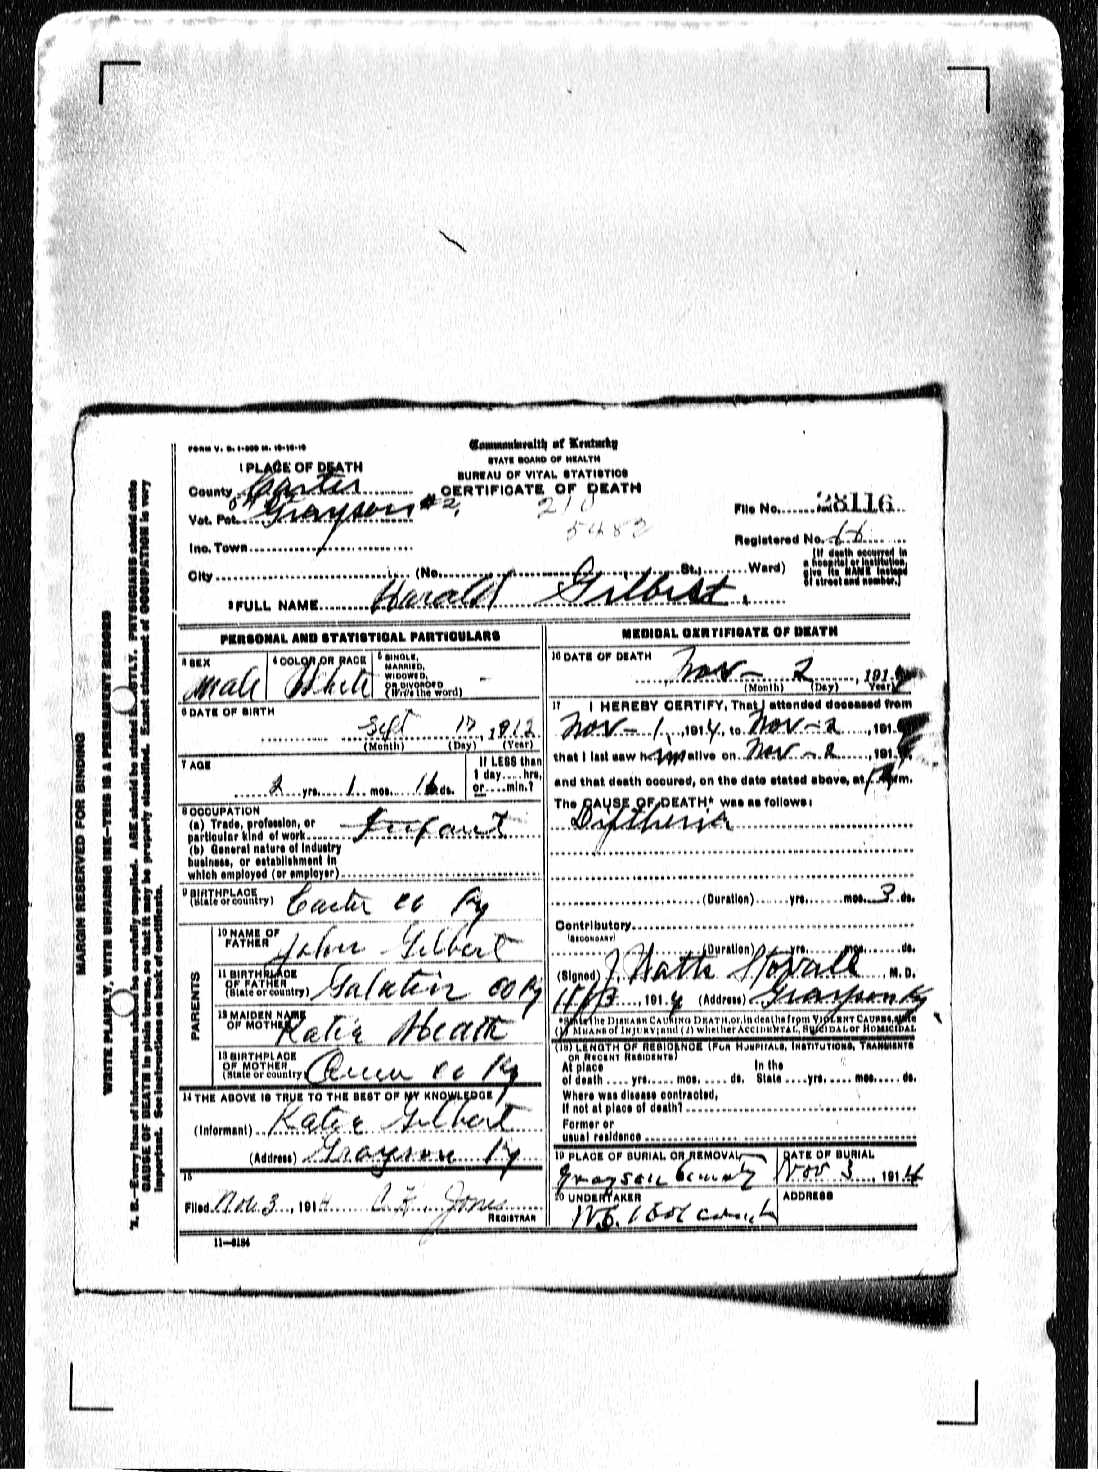 FORM V. S. 1-500 M. 10-10-10
Commonwealth of Kentucky
STATE BOARD OF HEALTH
BUREAU OF VITAL STATISTICS
CERTIFICATE OF DEATH
1 PLACE OF DEATH
County Carter
Vot. Pct. Grayson #2,
Inc. Town
City (No. St.; Ward)
210
5482
File No. 28116
Registered No.
(If death occurred in
a hospital or institution,
give its NAME instead
of street and number.)
2 FULL NAME Harald Gilbert.
PERSONAL AND STATISTICAL PARTICULARS
3 SEX
Male
4 COLOR OR RACE
White
5 SINGLE,
MARRIED,
WIDOWED,
OR DIVORCED
(Write the word) -
6 DATE OF BIRTH
Sept 17, 1912
(Month) (Day) (Year)
7 AGE
2 yrs. 1 mos. 16 ds.
If LESS than
1 day hrs.
or min.?
8 OCCUPATION
(a) Trade, profession, or
particular kind of work Infant
(b) General nature of industry
business, or establishment in
which employed (or employer)
9 BIRTHPLACE
(State or country) Carter co Ky
PARENTS
10 NAME OF
FATHER John Gilbert
11 BIRTHPLACE
OF FATHER
(State or country) Galatin co Ky
12 MAIDEN NAME
OF MOTHER Katie Heath
13 BIRTHPLACE
OF MOTHER
(State or country) Owen co Ky
14 THE ABOVE IS TRUE TO THE BEST OF MY KNOWLEDGE
(Informant) Katie Gilbert
(Address) Grayson Ky
15
Filed Nov. 3, 1914 Jones
REGISTRAR
11-6184
MEDICAL CERTIFICATE OF DEATH
16 DATE OF DEATH
Nov - 2, 1914
(Month) (Day) Year)
17 I HEREBY CERTIFY, That I attended deceased from
Nov - 1, 1914, to Nov - 2, 1914
that I last saw him alive on Nov - 2, 1914
and that death occured, on the date stated above, at m.
The CAUSE OF DEATH* was as follows:
Diftheria
(Duration) yrs. mos. 3 ds.
Contributory
(SECONDARY)
(Duration) yrs. mos. ds.
(Signed) J. Watts Stovall, M. D.
11/3, 1914 (Address) Grayson Ky
*State the DISEASE CAUSING DEATH, or, in deaths from VIOLENT CAUSES, state
(1) MEANS OF INJURY; and (2) whether ACCIDENTAL, SUICIDAL or HOMICIDAL
(18) LENGTH OF RESIDENCE (FOR HOSPITALS, INSTITUTIONS, TRANSIENTS
OR RECENT RESIDENTS)
At place In the
of death yrs. mos. ds. State yrs. mos. ds.
Where was disease contracted,
if not at place of death?
Former or
usual residence
19 PLACE OF BURIAL OR REMOVAL
Grayson
DATE OF BURIAL
Nov 3, 1914
20 UNDERTAKER
ADDRESS
MARGIN RESERVED FOR BINDING
WRITE PLAINLY, WITH UNFADING INK—THIS IS A PERMANENT RECORD
N. B.—Every item of information should be carefully supplied. AGE should be stated EXACTLY. PHYSICIANS should state
CAUSE OF DEATH in plain terms, so that it may be properly classified. Exact statement of OCCUPATION is very
important. See instructions on back of certificate.